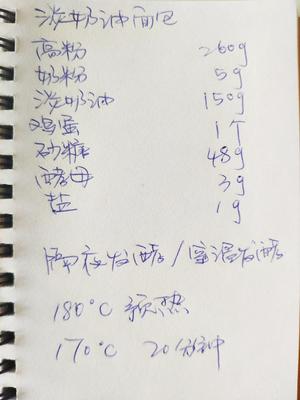 淡奶油面包
高粉 260g
奶粉 5g
淡奶油 150g
鸡蛋 1个
砂糖 48g
酵母 3g
盐 1g
隔夜发酵/室温发酵
180°C 预热
170°C 20分钟